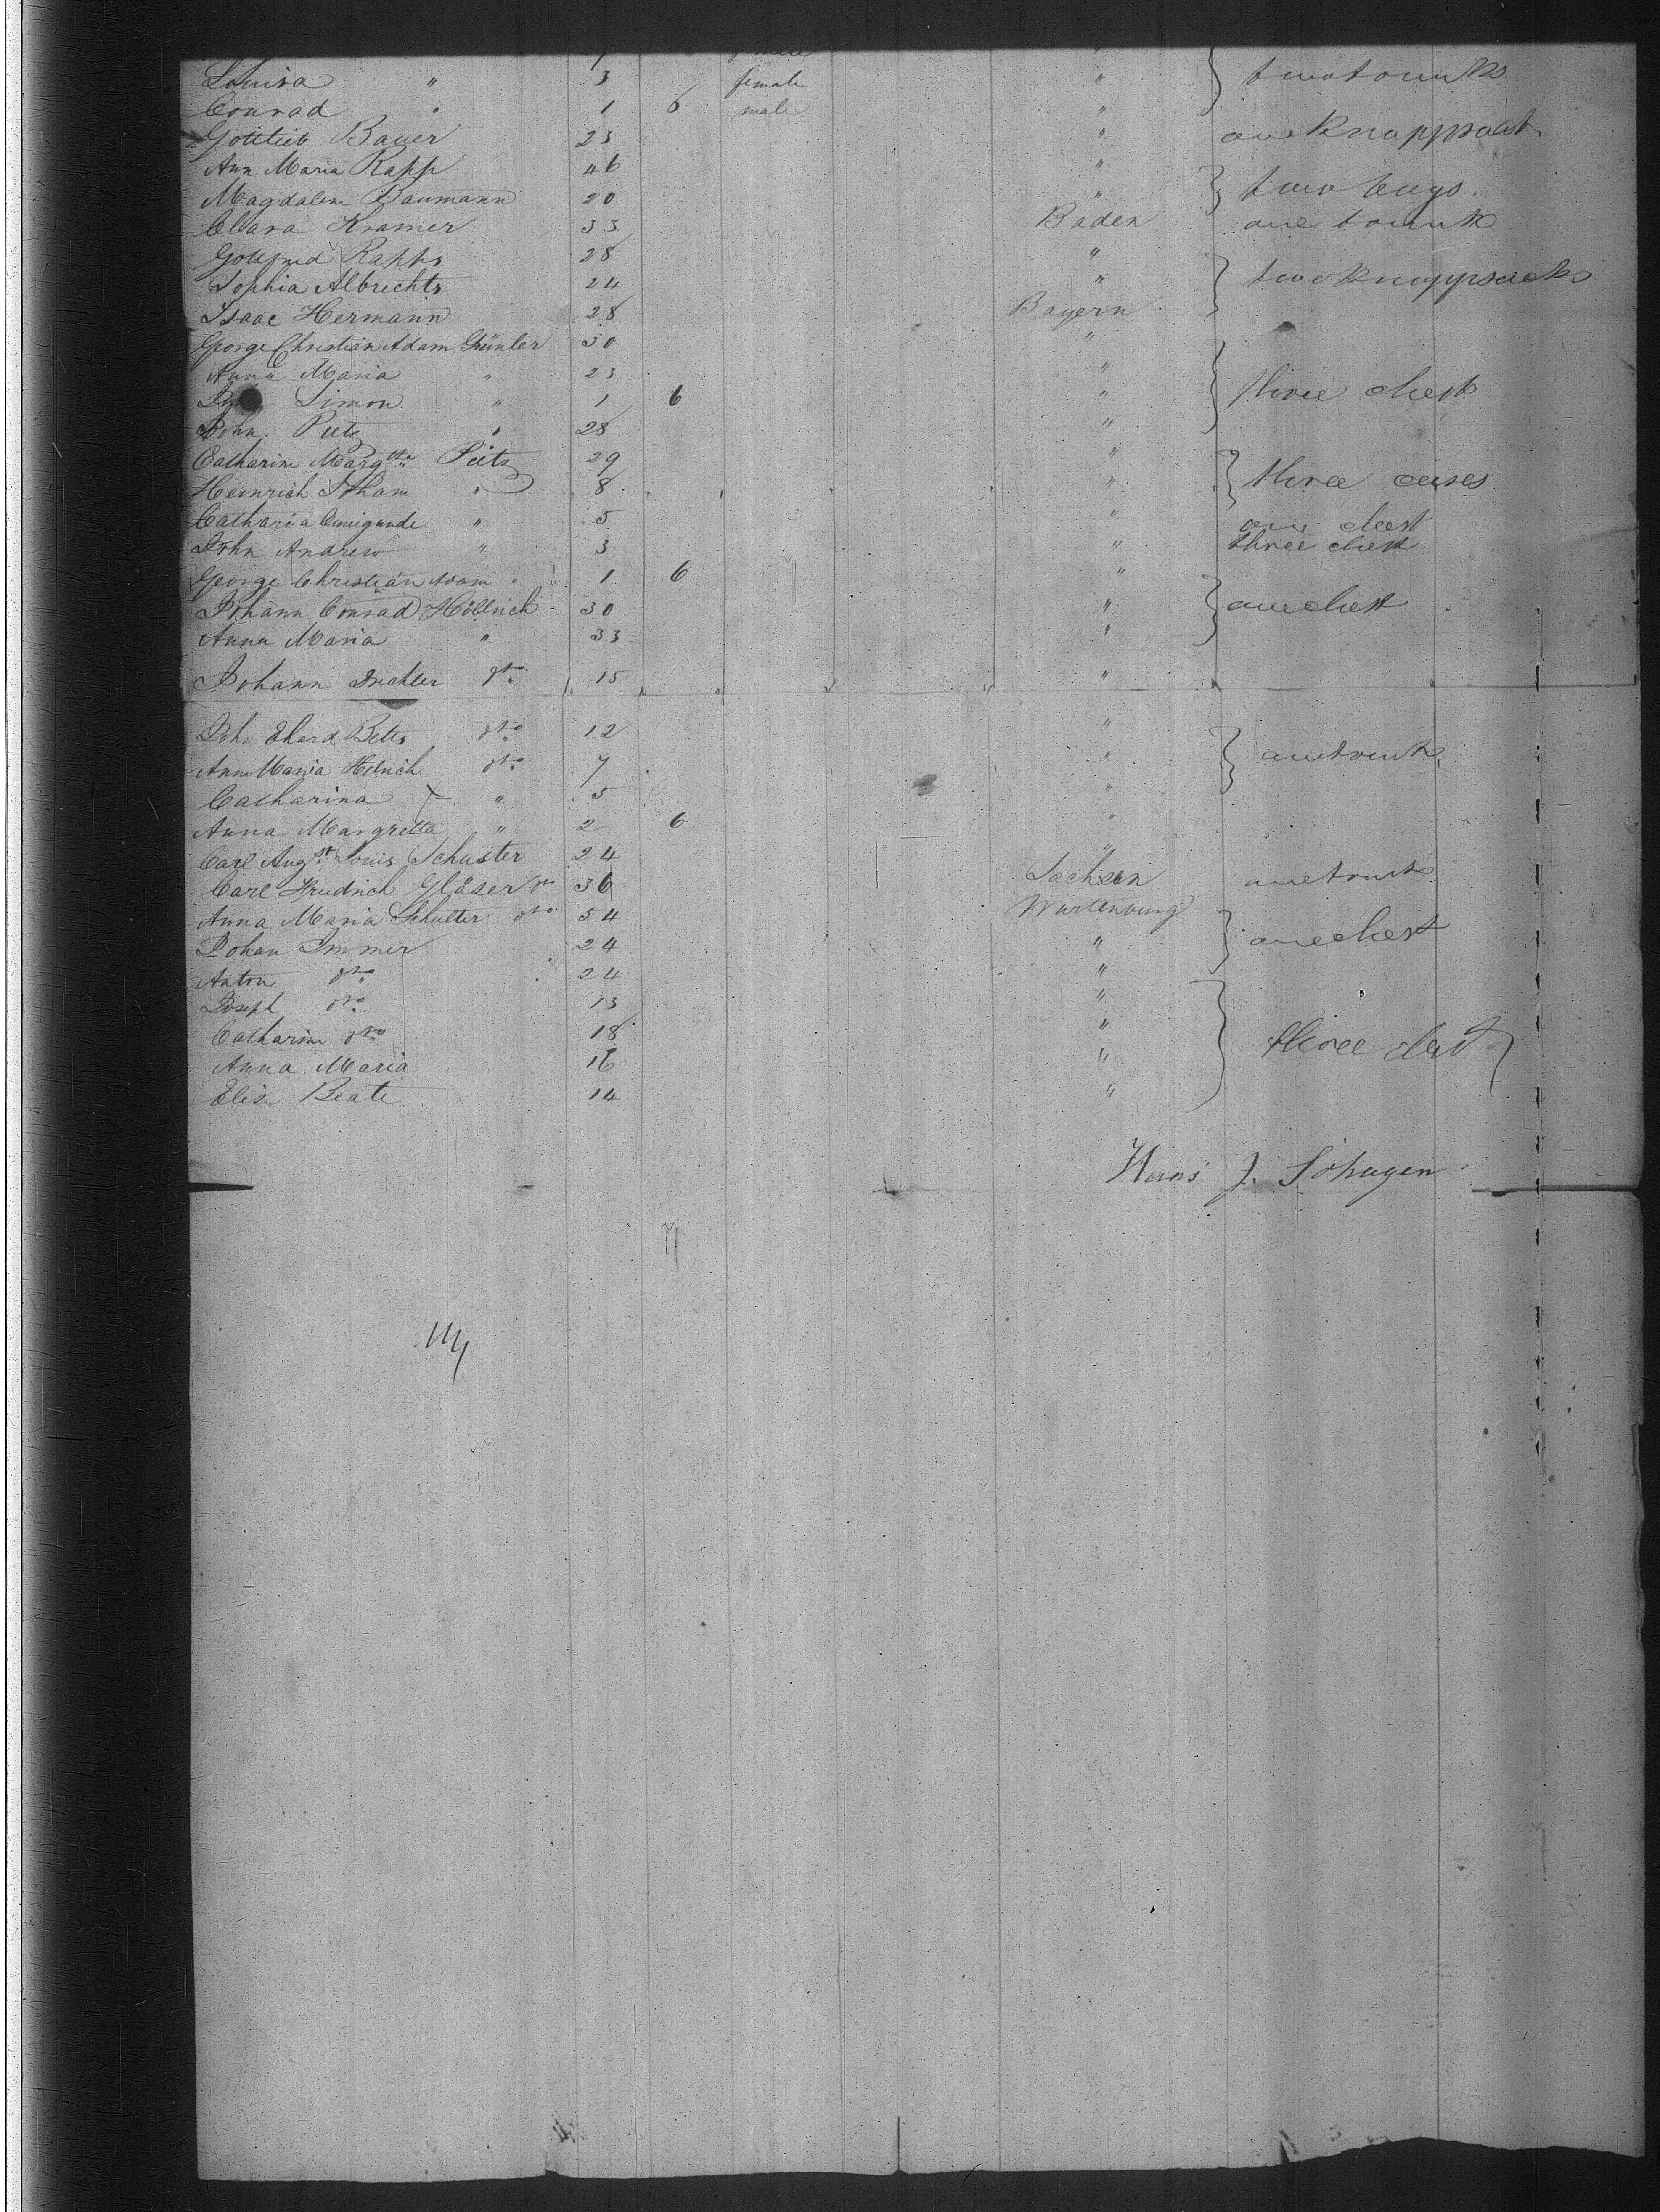 Louisa " 3 female " } two trunks
Conrad " 1 6 male "
Gottlieb Bauer 23 " one Knappsack
Ann Maria Rapp 46 "
Magdalene Baumann 20 " } two bags.
Clara Kramer 33 Baden one trunk
Gottfried Rapps 28 "
Sophia Albrechts 24 " } two Knappsacks
Isaac Hermann 28 Bayern
George Christian Adam 30 "
Anna Maria " 23 "
Simon " 1 6 " } three chest
John Peetz " 28 "
Catharine Marg Peetz 29 "
Heinrich Joham " 8 " } three cases
Catharia Cunigunde " 5 " one chest
John Andrew " 3 " three chest
George Christian Adam " 1 6 "
Johann Conrad Höllrich 30 " } one chest
Anna Maria " 33 "
Johann dto 15 "
John Ehard dto 12 "
Anna Maria dto 7 " } one trunk
Catharina " 5 "
Anna Margretta " 2 6 "
Carl Augst Louis Schuster 24 "
Carl Friedrich Gläser 36 Sachsen one trunk
Anna Maria Schulter dto 54 Wurtenburg
Johan Immer 24 " } one chest
Anton dto 24 "
Joseph dto 13 "
Catharine dto 18 "
Anna Maria 16 " } three chest }
Elise Beate 14 "
Hans J.